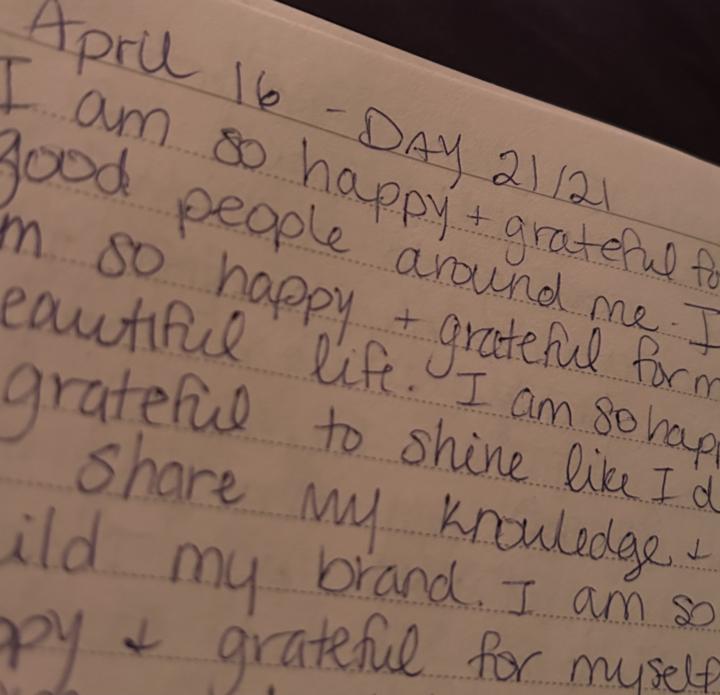 April 16 - DAY 21/21
I am so happy + grateful fo
good people around me. I
m so happy + grateful for m
eautiful life. I am so happ
grateful to shine like I d
share my knowledge +
ild my brand. I am so
ppy + grateful for myself